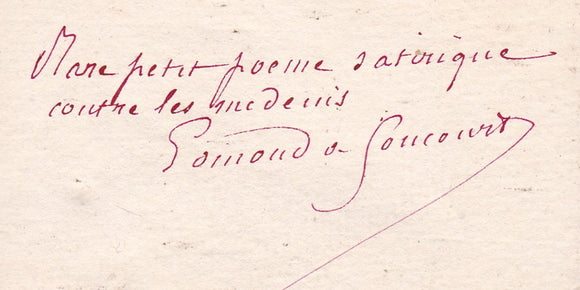 Rare petit poeme satirique
contre les medecins
Edmond de Goncourt